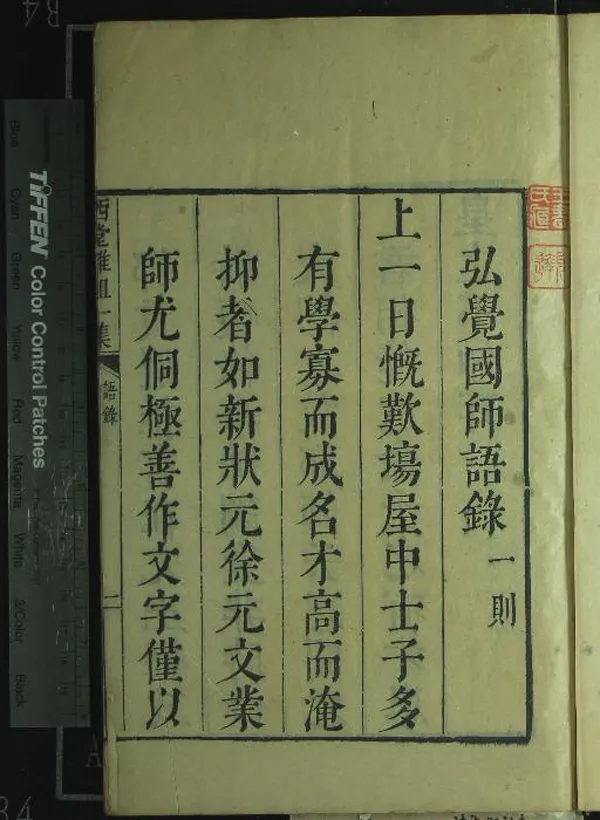 弘覺國師語錄 一則
上一日慨歎塲屋中士子多
有學寡而成名才高而淹
抑者如新狀元徐元文業
師尤侗極善作文字僅以
西堂雜俎一集
語錄
二
TIFFEN Color Control Patches
Blue
Cyan
Green
Yellow
Red
Magenta
White
3/Color
Black